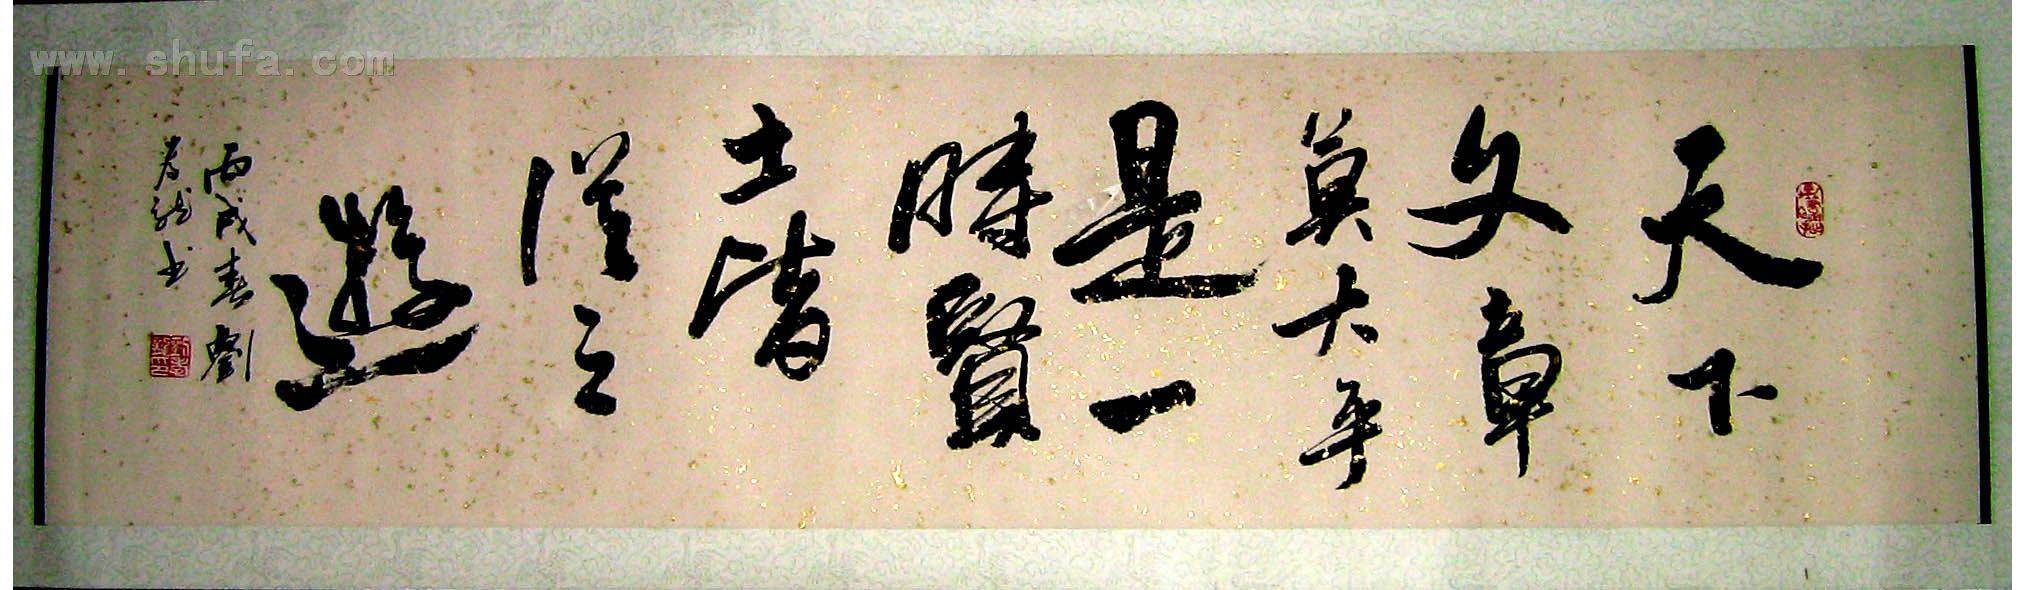 天下
文章
莫大乎
是一
時賢
士皆
從之
遊
丙戌春劉
書
www.shufa.com